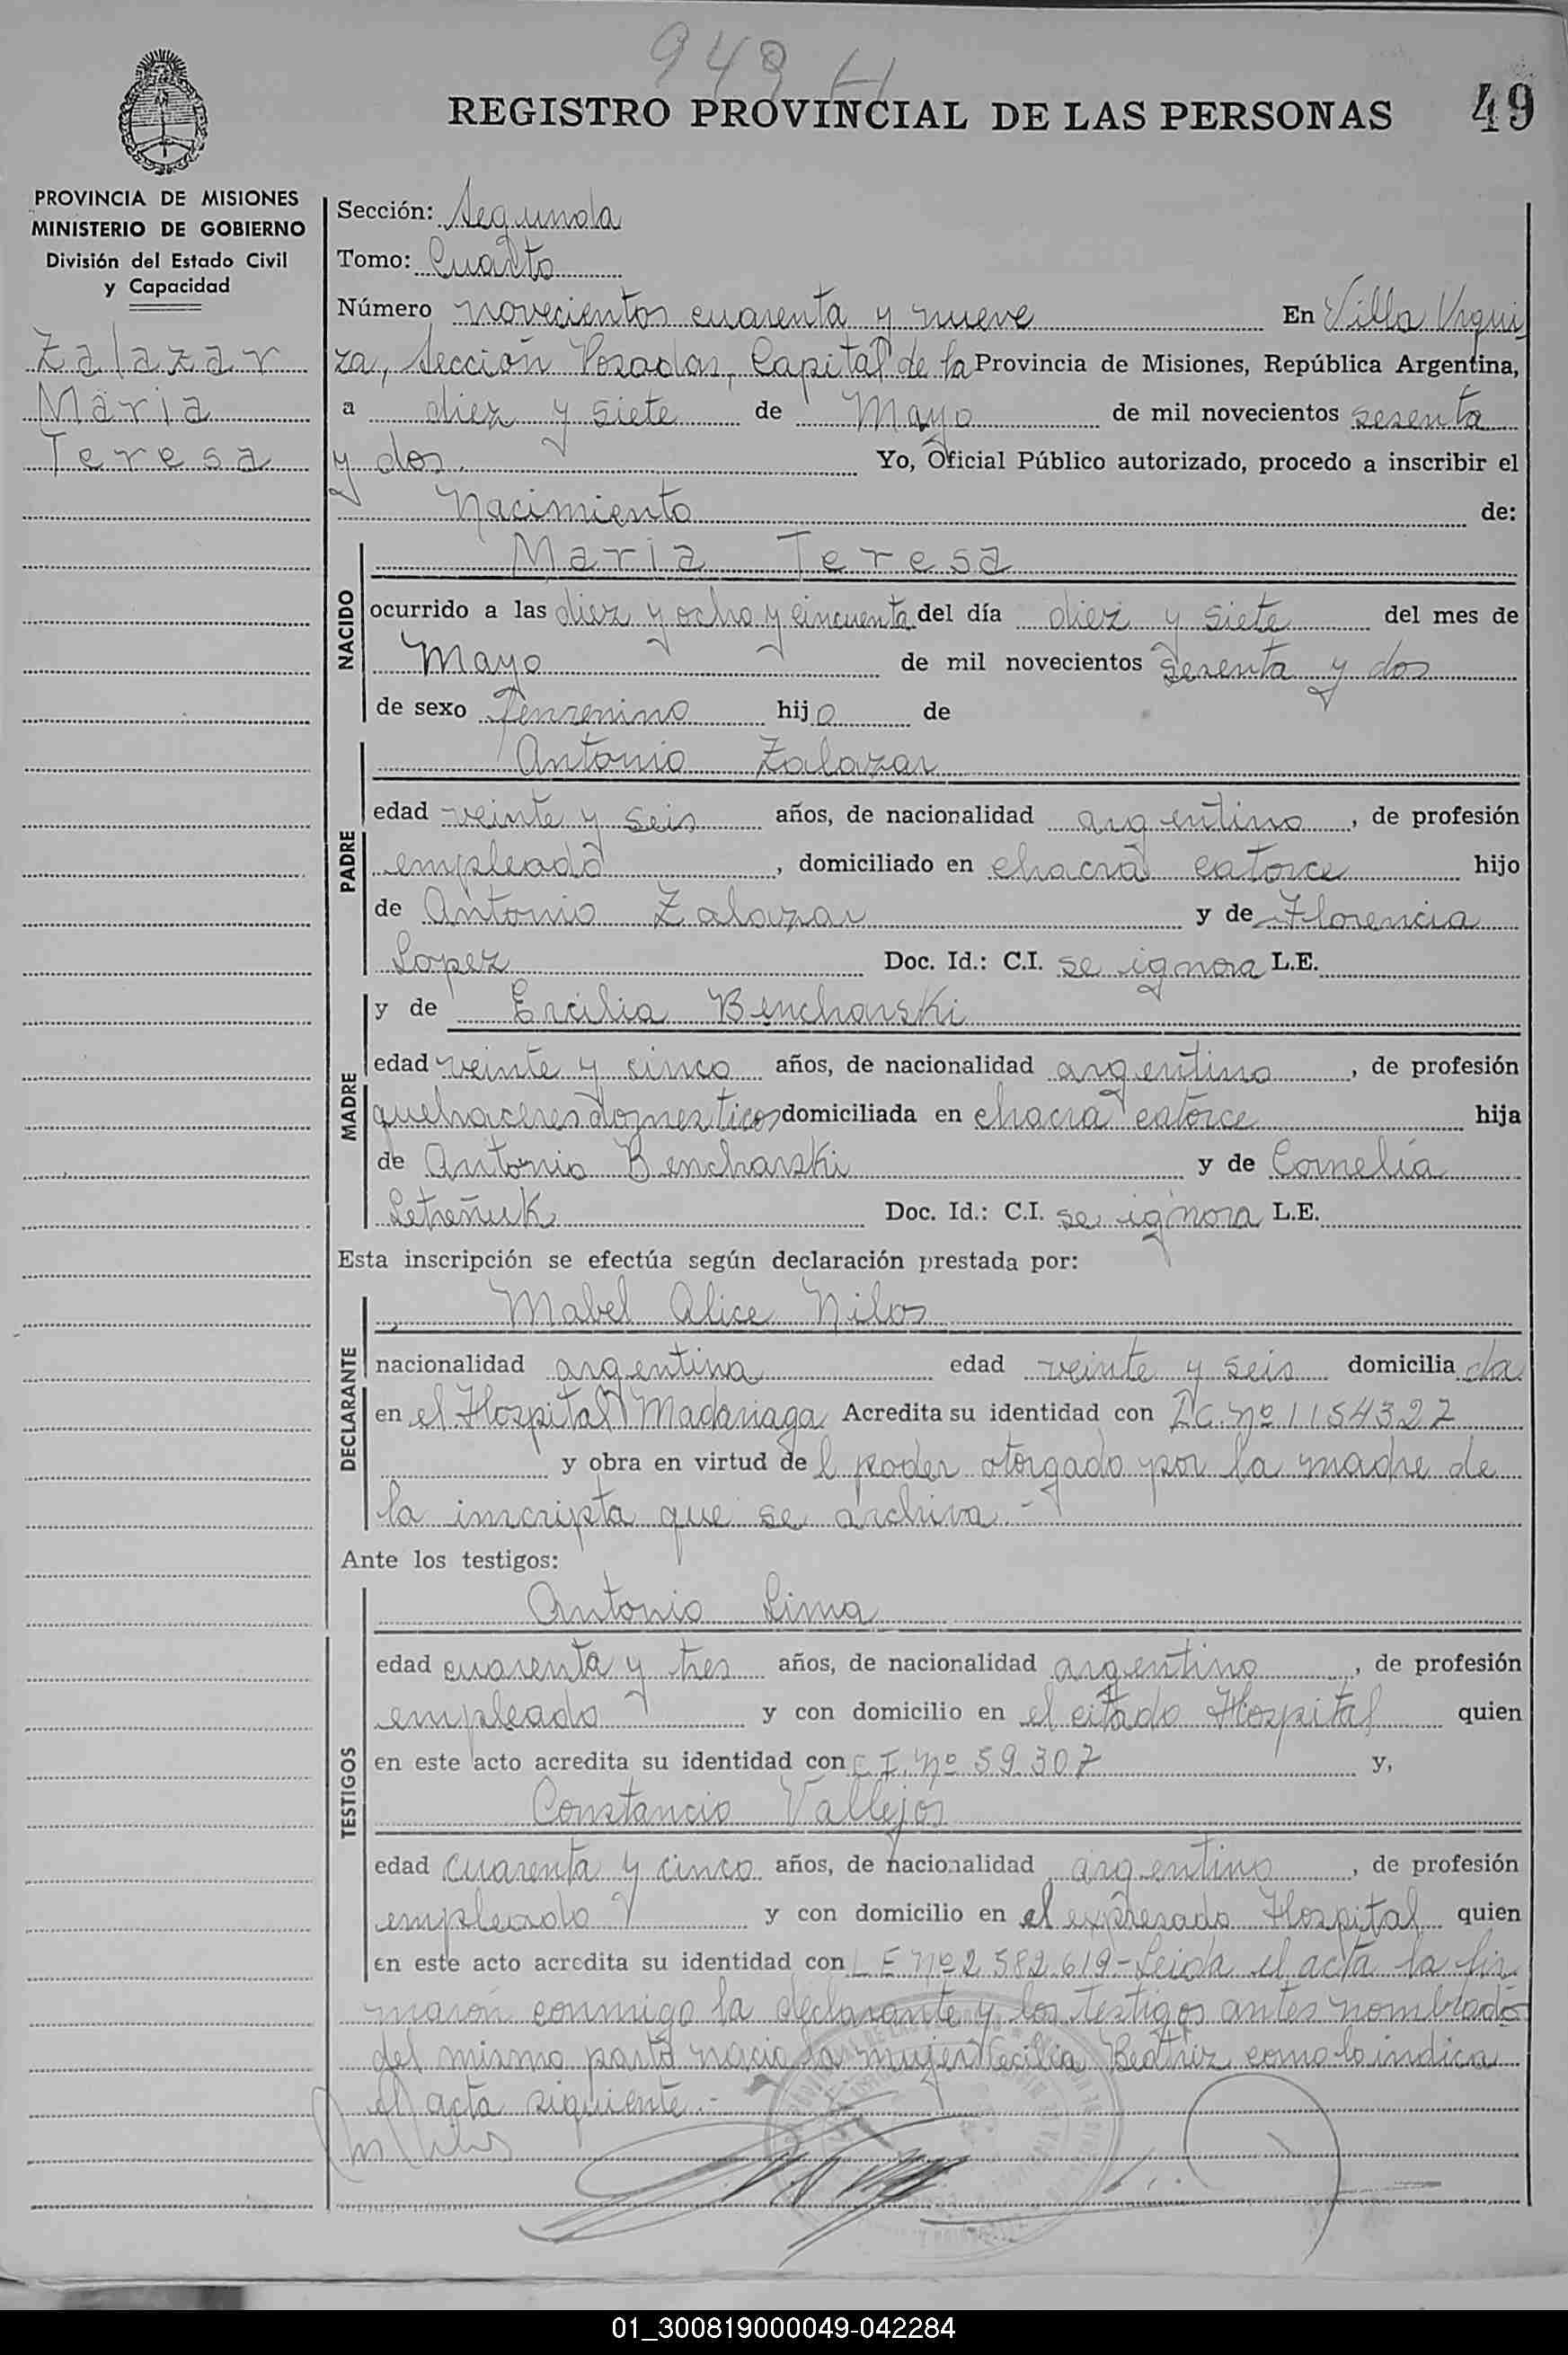 949 H
REGISTRO PROVINCIAL DE LAS PERSONAS 49
PROVINCIA DE MISIONES
MINISTERIO DE GOBIERNO
División del Estado Civil
y Capacidad
Zalazar
Maria
Teresa
Sección: Segunda
Tomo: Cuarto
Número novecientos cuarenta y nueve En Villa Urqui
za, Sección Posadas, Capital de la Provincia de Misiones, República Argentina,
a diez y siete de Mayo de mil novecientos sesenta
y dos. Yo, Oficial Público autorizado, procedo a inscribir el
Nacimiento de:
NACIDO
Maria Teresa
ocurrido a las diez y ocho y cincuenta del día diez y siete del mes de
Mayo de mil novecientos sesenta y dos
de sexo femenino hija de
PADRE
Antonio Zalazar
edad veinte y seis años, de nacionalidad argentino, de profesión
empleado, domiciliado en chacra catorce hijo
de Antonio Zalazar y de Florencia
Lopez Doc. Id.: C.I. se ignora L.E.
MADRE
y de Ercilia Bencharski
edad veinte y cinco años, de nacionalidad argentina, de profesión
quehaceres domesticos domiciliada en chacra catorce hija
de Antonio Bencharski y de Cornelia
Letreñuk Doc. Id.: C.I. se ignora L.E.
Esta inscripción se efectúa según declaración prestada por:
DECLARANTE
Mabel Alice Nilos
nacionalidad argentina edad veinte y seis domiciliada
en el Hospital Madariaga Acredita su identidad con Nº 1154327
y obra en virtud del poder otorgado por la madre de
la inscripta que se archiva.-
Ante los testigos:
TESTIGOS
Antonio Lima
edad cuarenta y tres años, de nacionalidad argentino, de profesión
empleado y con domicilio en el citado Hospital quien
en este acto acredita su identidad con C.I. Nº 59.307 y,
Constancio Vallejos
edad cuarenta y cinco años, de nacionalidad argentino, de profesión
empleado y con domicilio en el expresado Hospital quien
en este acto acredita su identidad con L E Nº 2.582.619-Leida el acta la fir
maron conmigo la declarante y los testigos antes nombrados
del mismo parto nacio la mujer Cecilia Beatriz como lo indica
el acta siguiente.-
01_300819000049-042284